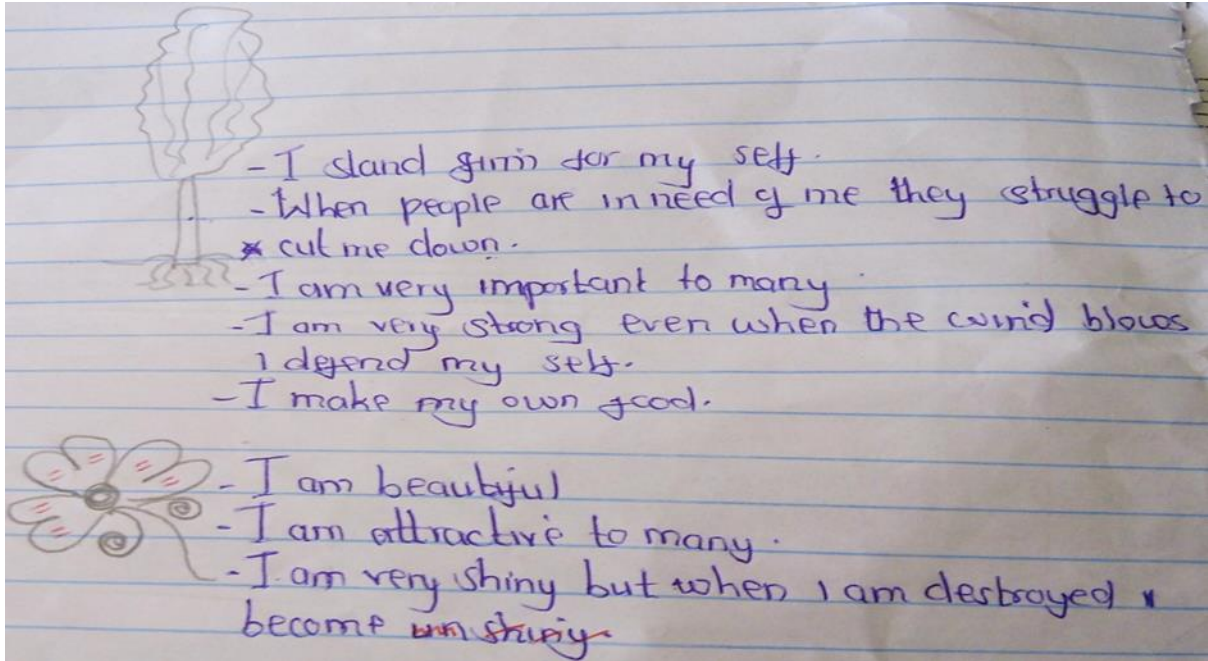 - I stand firm for my self.
- When people are in need of me they struggle to
cut me down.
- I am very important to many.
- I am very strong even when the wind blows
I defend my self.
- I make my own food.
- I am beautiful
- I am attractive to many.
- I am very shiny but when I am destroyed I
become unshiny